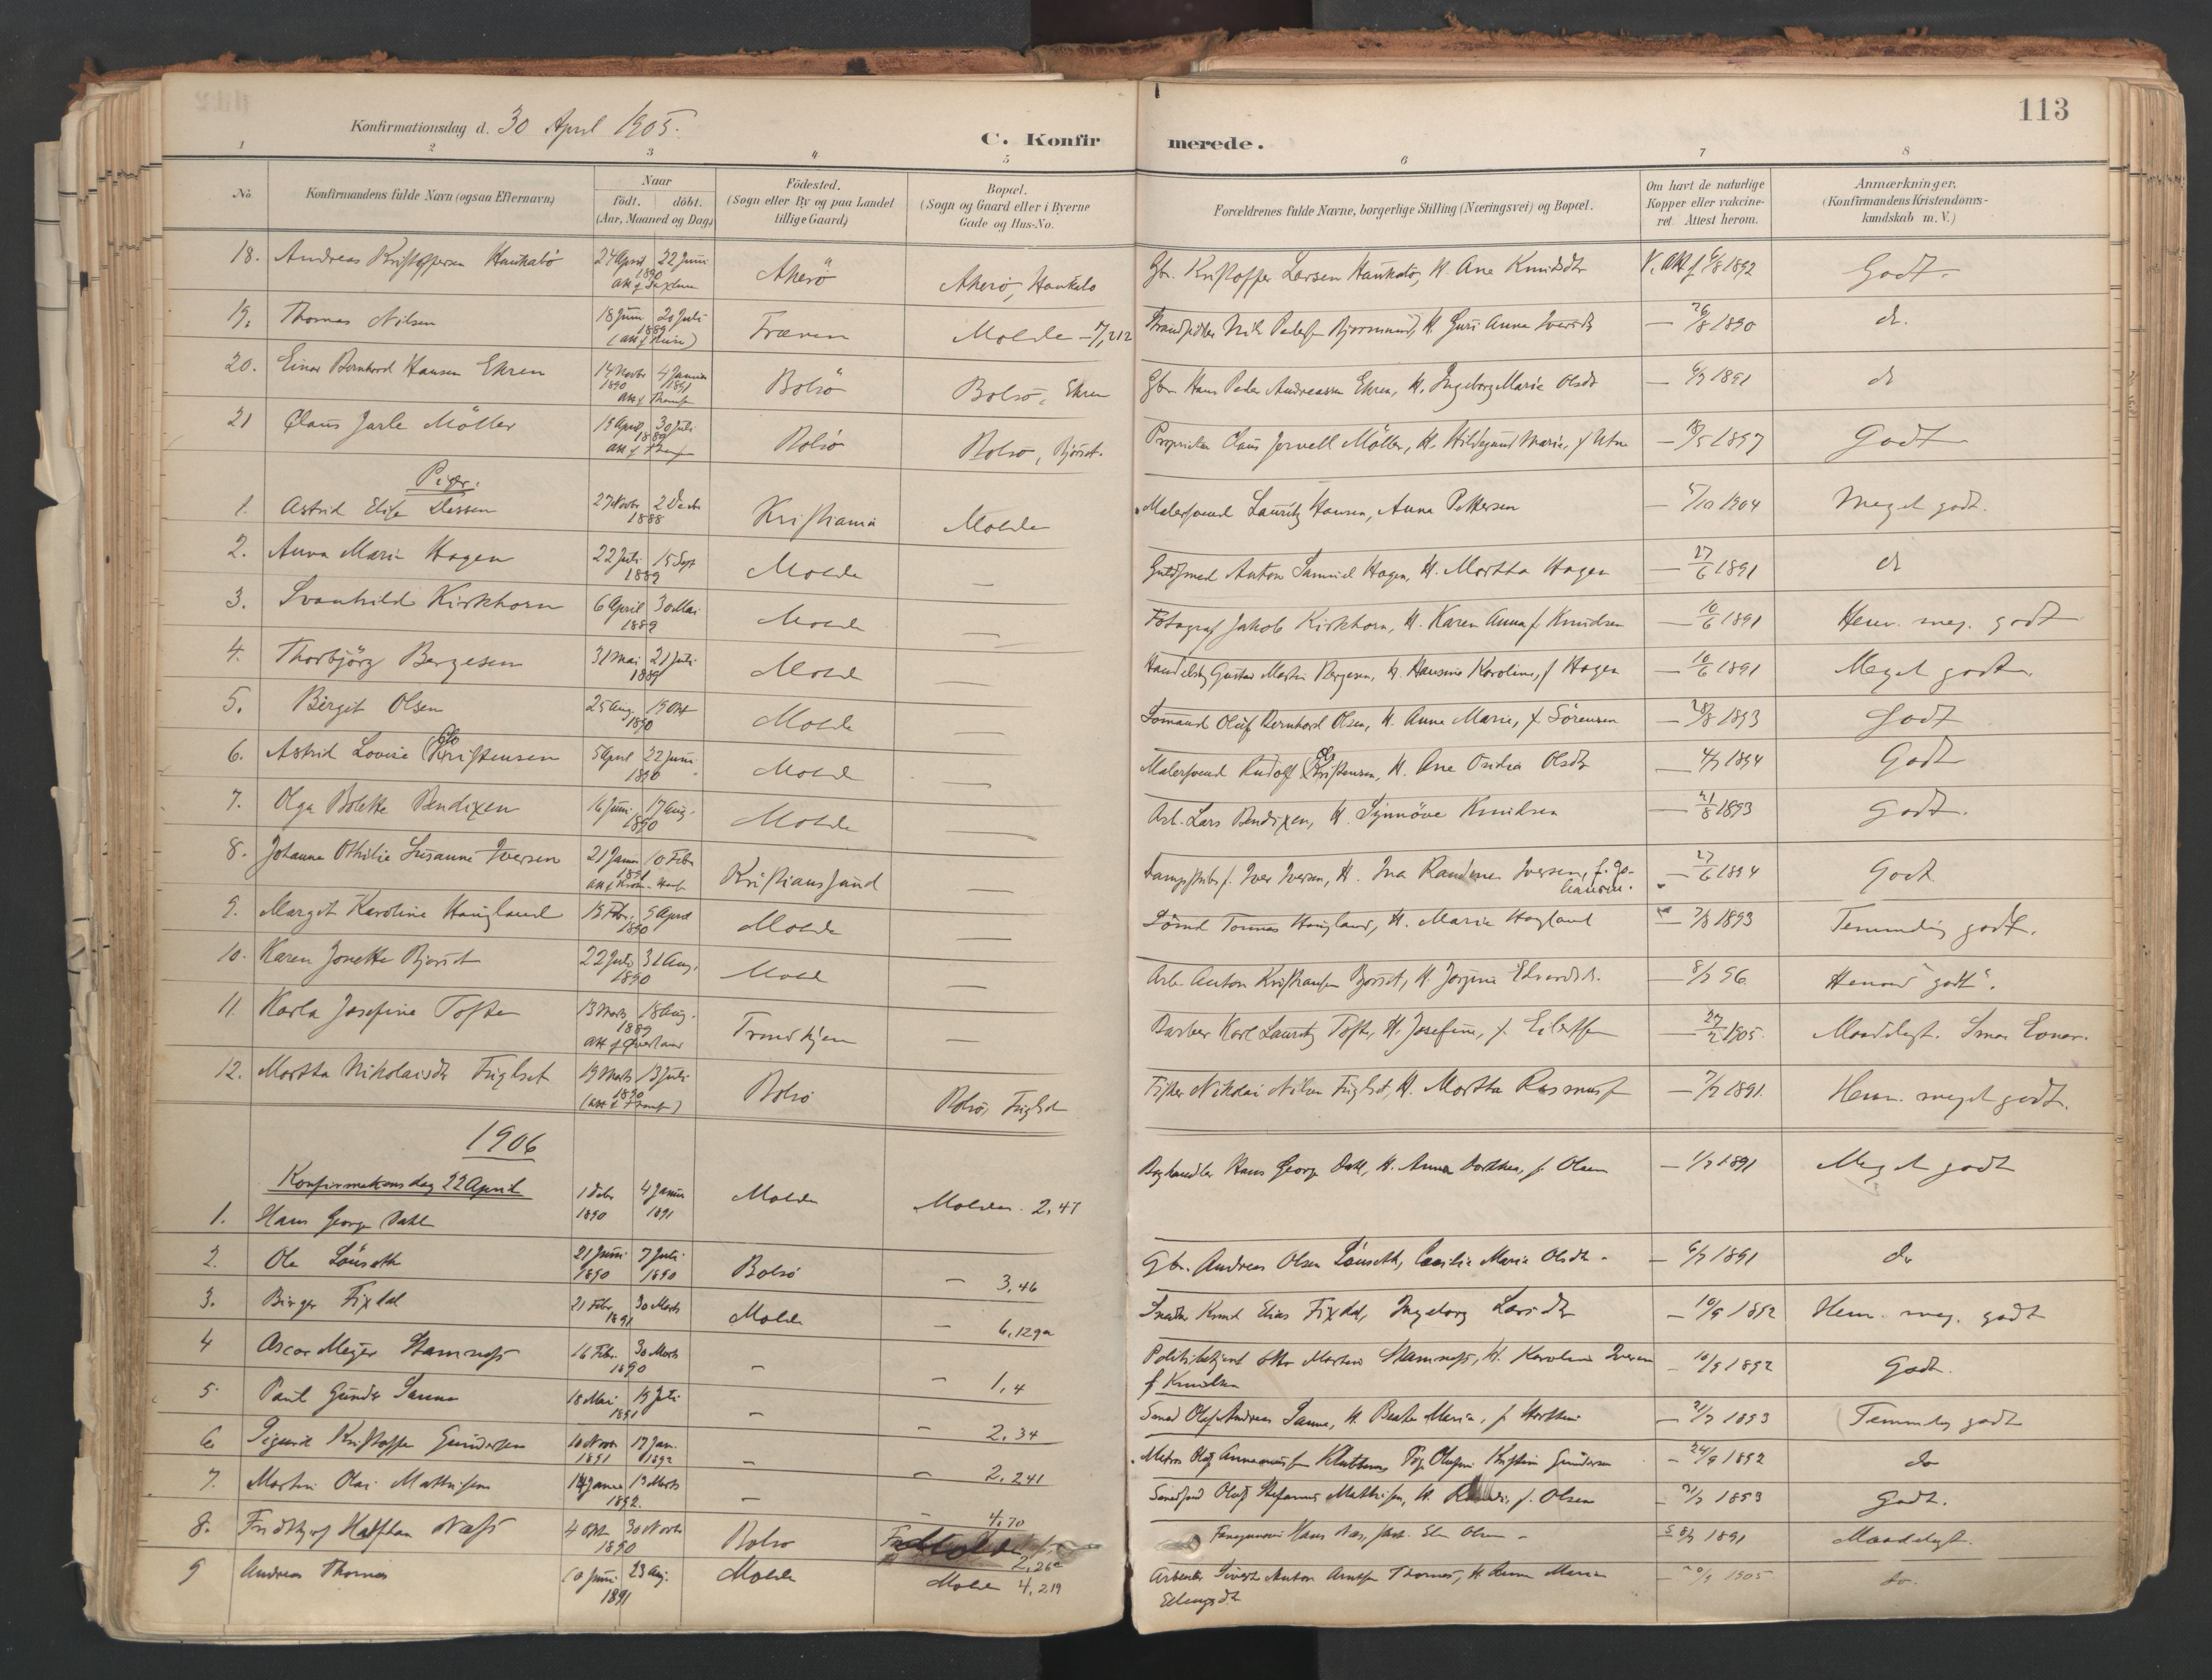 113
Konfirmationsdag d. 30 April 1905.
C. Konfirmerede.
1 2 3 4 5 6 7 8
No
Konfirmandens fulde Navn (ogsaa Efternavn)
Naar
født. døbt.
(Aar, Maaned og Dag)
Födested.
(Sogn eller By og paa Landet
tillige Gaard)
Bopæl.
(Sogn og Gaard eller i Byerne
Gade og Hus-No.
Forældrenes fulde Navne, borgerlige Stilling (Næringsvei) og Bopæl.
Om havt de naturlige
Kopper eller vakcine-
ret. Attest herom.
Anmærkninger.
(Konfirmandens Kristendoms-
kundskab m. V.)
18. Andreas Kristoffersen Haukabö 24 April 22 Juni 1890 Akerö Akerö, Haukabö Gbr. Kristoffer Larsen Haukabö, H. Ane Knudsdtr 1892 Godt.
19. Thomas Nilsen 18 Juni 20 Juli 1889 Fræven Molde Nils Peders Bjørnsund, H. Guri Anna Iversdtr 26/8 1890 do.
20. Einar Bernhard Hansen Ekren 14 Novbr 1890 4 Januar 1891 Bolsö Bolsö, Ekren Gbr. Hans Peder Andreassen Ekren, H. Ingeborg Marie Olsdtr 1891 do
21 Claus Jarle Möller 19 April 30 Juli 1889 Bolsö Bolsö, Bjórset. Proprietær Claus Jervell Möller, H. Hildegund Marie, f 1897 Godt
Piger.
1. Astrid Elise 27 Novbr 2 Decbr 1888 Kristiania Molde Malersvend Lauritz Hansen, Anna Pettersen 5/10 1904 Meget godt.
2. Anna Marie Hagen 22 Juli 15 Sept 1889 Molde — Guldsmed Anton Samuel Hagen, H. Martha Hagen — 27/6 1891 do
3. Svanhild Kirkhorn 6 April 30 Mai 1889 Molde — Fotograf Jakob Kirkhorn, H. Karen Anna f. Knudsen — 10/6 1891 Henv. meg. godt
4. Thorbjörg Bergesen 31 Mai 21 Juli 1889 Molde — Gustav Martin Bergesen, H. Hansine Karoline, f Hagen — 10/6 1891 Meget godt.
5. Birgit Olsen 25 Aug. 19 Okt 1890 Molde — Sömand Oluf Bernhard Olsen, H. Anne Marie, f. Sörensen 1893 Godt
6. Astrid Lovise Kristensen 5 April 22 Juni 1890 Molde — Malersvend Rudolf Kristensen, H. Ane Olsdtr 1894 Godt
7. Olga Bolette Bendixen 16 Juni 17 Aug. 1890 Molde — Arb. Lars Bendixen, H. Synnöve Knudsen — 21/8 1893 Godt.
8. Johanne Othilie Susanne Iversen 21 Januar 10 Febr 1891 Kristianssund — Iver Iversen, H. Ina Randine Iversen, f. Jo-
hansen. — 27/6 1894 Godt
9. Margit Karoline Haugland 15 Febr. 5 April 1890 Molde — Tönnes Haugland, H. Marie Haugland — 1893 Temmelig godt.
10. Karen Jonette Bjørset 22 Juli 31 Aug. 1890 Molde — Arb. Anton Kristiansen Bjørset, H. Jorgine 96 Henved "godt".
11. Karla Josefine Tofte 13 Marts 18 Aug. 1889 Trondhjem — Barber Karl Lauritz Tofte, H. Josefine, f. Eilertsen 1905. Maadeligt.
12. Martha Nikolaisdtr Fuglset 19 Marts 13 Juli 1890 Bolsö Bolsö, Fuglset Fisker Nikolai Nilsen Fuglset, H. Martha Rasmusd 1891. Henv. meget godt.
1906
Konfirmationsdag 22 April
1. Hans George Dahl 1 Debr 1890 4 Januar 1891 Molde Molde. 2,47 Boghandler Hans George Dahl, H. Anna Dorthea, f. Olsen 1891 Meget godt
2. Ole Lönseth 21 Juni 1890 7 Juli 1890 Bolsö — 3,46 Gbr. Andreas Olsen Lönseth, Cecilie Marie Olsdtr. — 1891 do
3. Birger Fixdal 21 Febr. 30 Marts 1891 Molde — 6,129a Knud Elias Fixdal, Ingeborg Larsdtr — 10/9 1892 Henv. meg. godt
4 Oscar Meyer Stamnæss 16 Febr. 30 Marts 1890 — — 1,4 Politibetjent Otto Martin Stamnæss, H. Karoline Iversen
f. Knudsen — 10/9 1892 Godt.
5 Paul Gunder Sanne 18 Mai 19 Juli 1891 — — 2.34 Olaf Andreas Sanne, H. Beate Marie, f. — 1893 Temmelig godt
6 Sigurd Kristoffer Gundersen 10 Novbr 1891 17 Jan. 1892 — — 2,241 Pige Olufine Kristine Gundersen — 24/9 1892 do
7. Martin Olai Mathisen 14 Januar 13 Marts 1892. — — 4,70 Oluf Stefanus Mathisen, H. f. Olsen 1893 Godt.
8. Fridthjof Halfdan Næss 4 Okt 30 Novbr 1890 Bolsö 2,26a Hans Næs, 1891 Maadeligt.
9 Andreas Thornes 10 Juni 23 Aug. 1891 Molde Molde 4,219 Arbeider Sivert Anton Arntsen Thornes, H. Anne Marie
Ellingsdtr 1905 do.